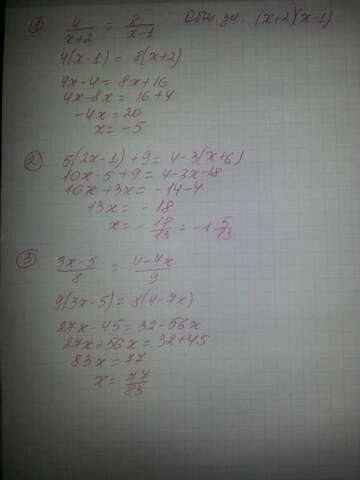 ① 4/(x+2) = 8/(x-1) Общ. зн. (x+2)(x-1)
4(x-1) = 8(x+2)
4x-4 = 8x+16
4x-8x = 16+4
-4x = 20
x = -5
② 5(2x-1)+9 = 4-3(x+6)
10x-5+9 = 4-3x-18
10x+3x = -14-4
13x = -18
x = -18/13 = -1 5/13
③ (3x-5)/8 = (4-7x)/9
9(3x-5) = 8(4-7x)
27x-45 = 32-56x
27x+56x = 32+45
83x = 77
x = 77/83